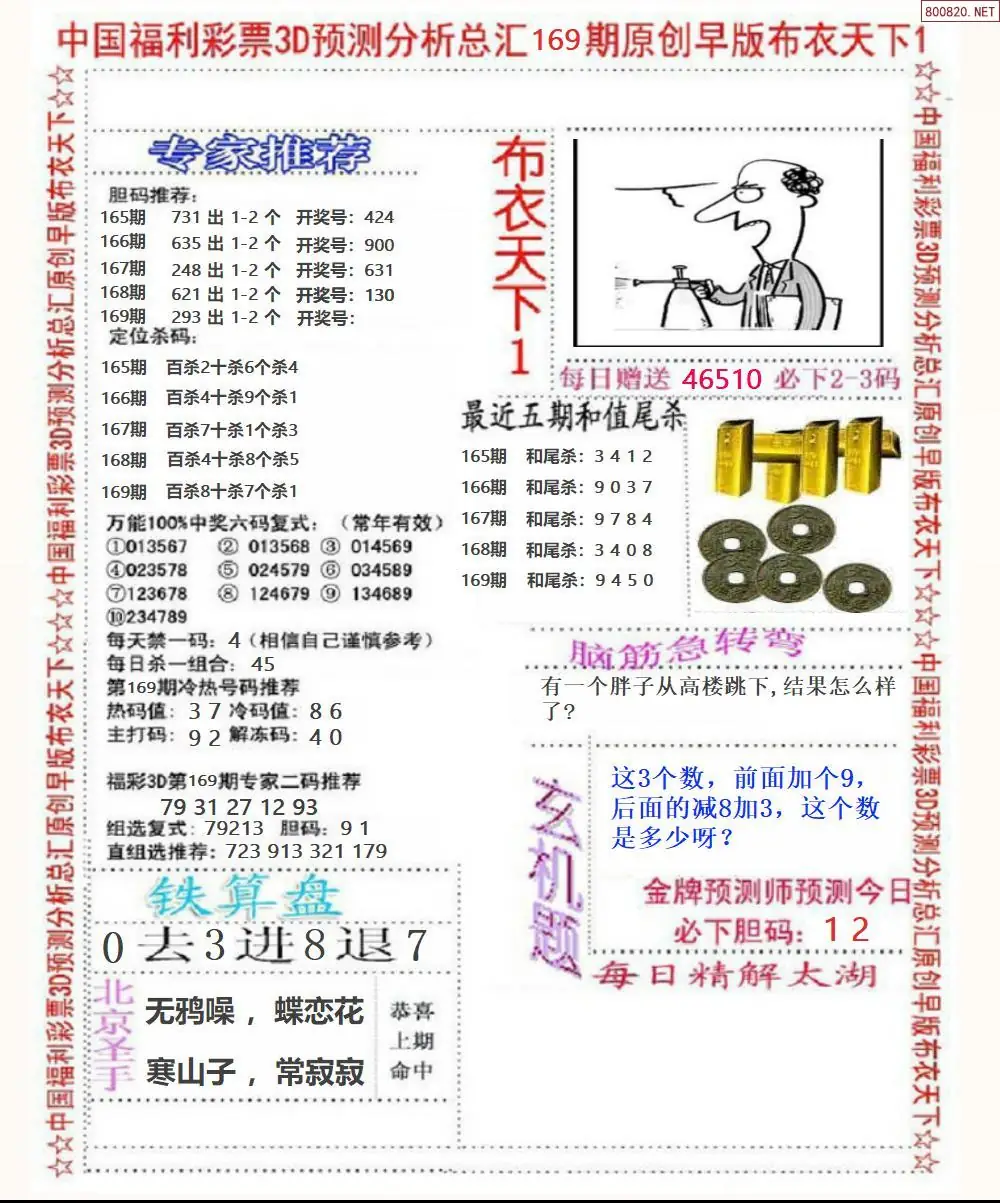 800820.NET
中国福利彩票3D预测分析总汇169期原创早版布衣天下1
☆☆中国福利彩票3D预测分析总汇原创早版布衣天下☆☆中国福利彩票3D预测分析总汇原创早版布衣天下☆☆
专家推荐
胆码推荐:
165期 731 出 1-2 个 开奖号: 424
166期 635 出 1-2 个 开奖号: 900
167期 248 出 1-2 个 开奖号: 631
168期 621 出 1-2 个 开奖号: 130
169期 293 出 1-2 个 开奖号:
定位杀码:
165期 百杀2十杀6个杀4
166期 百杀4十杀9个杀1
167期 百杀7十杀1个杀3
168期 百杀4十杀8个杀5
169期 百杀8十杀7个杀1
万能100%中奖六码复式: (常年有效)
①013567 ② 013568 ③ 014569
④023578 ⑤ 024579 ⑥ 034589
⑦123678 ⑧ 124679 ⑨ 134689
⑩234789
每天禁一码: 4(相信自己谨慎参考)
每日杀一组合: 45
第169期冷热号码推荐
热码值: 3 7 冷码值: 8 6
主打码: 9 2 解冻码: 4 0
福彩3D第169期专家二码推荐
79 31 27 12 93
组选复式: 79213 胆码: 9 1
直组选推荐: 723 913 321 179
铁算盘
0去3进8退7
北京圣手
无鸦噪，蝶恋花
寒山子，常寂寂
恭喜
上期
命中
布衣天下1
每日赠送 46510 必下2-3码
最近五期和值尾杀
165期 和尾杀: 3 4 1 2
166期 和尾杀: 9 0 3 7
167期 和尾杀: 9 7 8 4
168期 和尾杀: 3 4 0 8
169期 和尾杀: 9 4 5 0
脑筋急转弯
有一个胖子从高楼跳下,结果怎么样
了?
玄机题
这3个数，前面加个9，
后面的减8加3，这个数
是多少呀？
金牌预测师预测今日
必下胆码: 1 2
每日精解太湖
☆☆中国福利彩票3D预测分析总汇原创早版布衣天下☆☆中国福利彩票3D预测分析总汇原创早版布衣天下☆☆